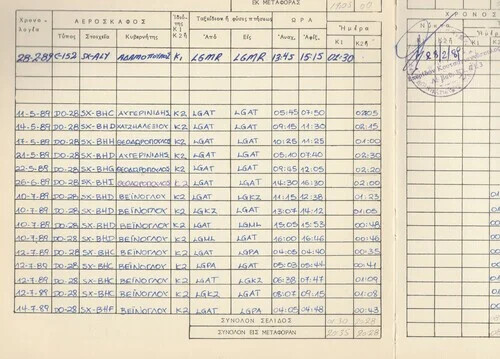 ΕΚ ΜΕΤΑΦΟΡΑΣ
Χρονολογία ΑΕΡΟΣΚΑΦΟΣ Ταξείδιον ή φύσις πτήσεως ΩΡΑ Ημέρα
Τύπος Στοιχεία Κυβερνήτης Από Εις Αναχ. Αφιξ. Κ1 Κ2
28-2-89 C-152 SX-ALY ΑΔΑΜΟΠΟΥΛΟΣ K1 LGMR LGMR 13:45 15:15 01:30
11-5-89 DO-28 SX-BHC ΑΥΓΕΡΙΝΙΔΗΣ K2 LGAT LGAT 05:45 07:50 02:05
14-5-89 DO-28 SX-BHD ΧΑΤΖΗΑΛΕΞΙΟΥ K2 LGAT LGAT 09:15 11:30 02:15
17-5-89 DO-28 SX-BHH ΘΕΟΔΩΡΟΠΟΥΛΟΣ K2 LGAT LGAT 10:25 11:25 01:00
21-5-89 DO-28 SX-BHD ΑΥΓΕΡΙΝΙΔΗΣ K2 LGAT LGAT 05:10 07:40 02:30
22-5-89 DO-28 SX-BHG ΘΕΟΔΩΡΟΠΟΥΛΟΣ K2 LGAT LGAT 09:45 12:05 02:20
26-6-89 DO-28 SX-BHI ΘΕΟΔΩΡΟΠΟΥΛΟΣ K2 LGAT LGAT 14:30 16:30 02:00
10-7-89 DO-28 SX-BHD ΒΕΪΝΟΓΛΟΥ K2 LGAT LGKZ 11:15 12:38 01:23
10-7-89 DO-28 SX-BHD ΒΕΪΝΟΓΛΟΥ K2 LGKZ LGAT 13:07 14:12 01:05
10-7-89 DO-28 SX-BHD ΒΕΪΝΟΓΛΟΥ K2 LGAT LGML 15:05 15:53 00:48
10-7-89 DO-28 SX-BHD ΒΕΪΝΟΓΛΟΥ K2 LGML LGAT 16:00 16:46 00:46
12-7-89 DO-28 SX-BHC ΒΕΪΝΟΓΛΟΥ K2 LGAT LGPA 04:05 04:40 00:35
12-7-89 DO-28 SX-BHC ΒΕΪΝΟΓΛΟΥ K2 LGPA LGAT 05:00 05:44 00:44
12-7-89 DO-28 SX-BHC ΒΕΪΝΟΓΛΟΥ K2 LGAT LGKZ 06:38 07:47 01:09
12-7-89 DO-28 SX-BHC ΒΕΪΝΟΓΛΟΥ K2 LGKZ LGAT 08:07 09:15 01:08
14-7-89 DO-28 SX-BHF ΒΕΪΝΟΓΛΟΥ K2 LGAT LGPA 04:05 04:48 00:43
ΣΥΝΟΛΟΝ ΣΕΛΙΔΟΣ
ΣΥΝΟΛΟΝ ΕΙΣ ΜΕΤΑΦΟΡΑΝ
ΧΡΟΝΟΣ
Ημέρα
28.2.89